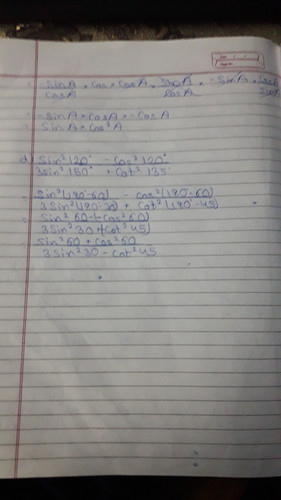 = -SinA × Cos × CosA × SinA × -SinA ×
CosA CosA
= -SinA × CosA × -CosA
= SinA × Cos²A
d) Sin²120° - Cos²120°
3Sin²150° + Cot²135°
= Sin²(180-60) - cos²(180-60)
3Sin²(180-30) + Cot²(180-45)
= Sin²60 + Cos²60)
3Sin²30 + (Cot²45)
Sin²60 + Cos²60
3Sin²30 - Cot²45